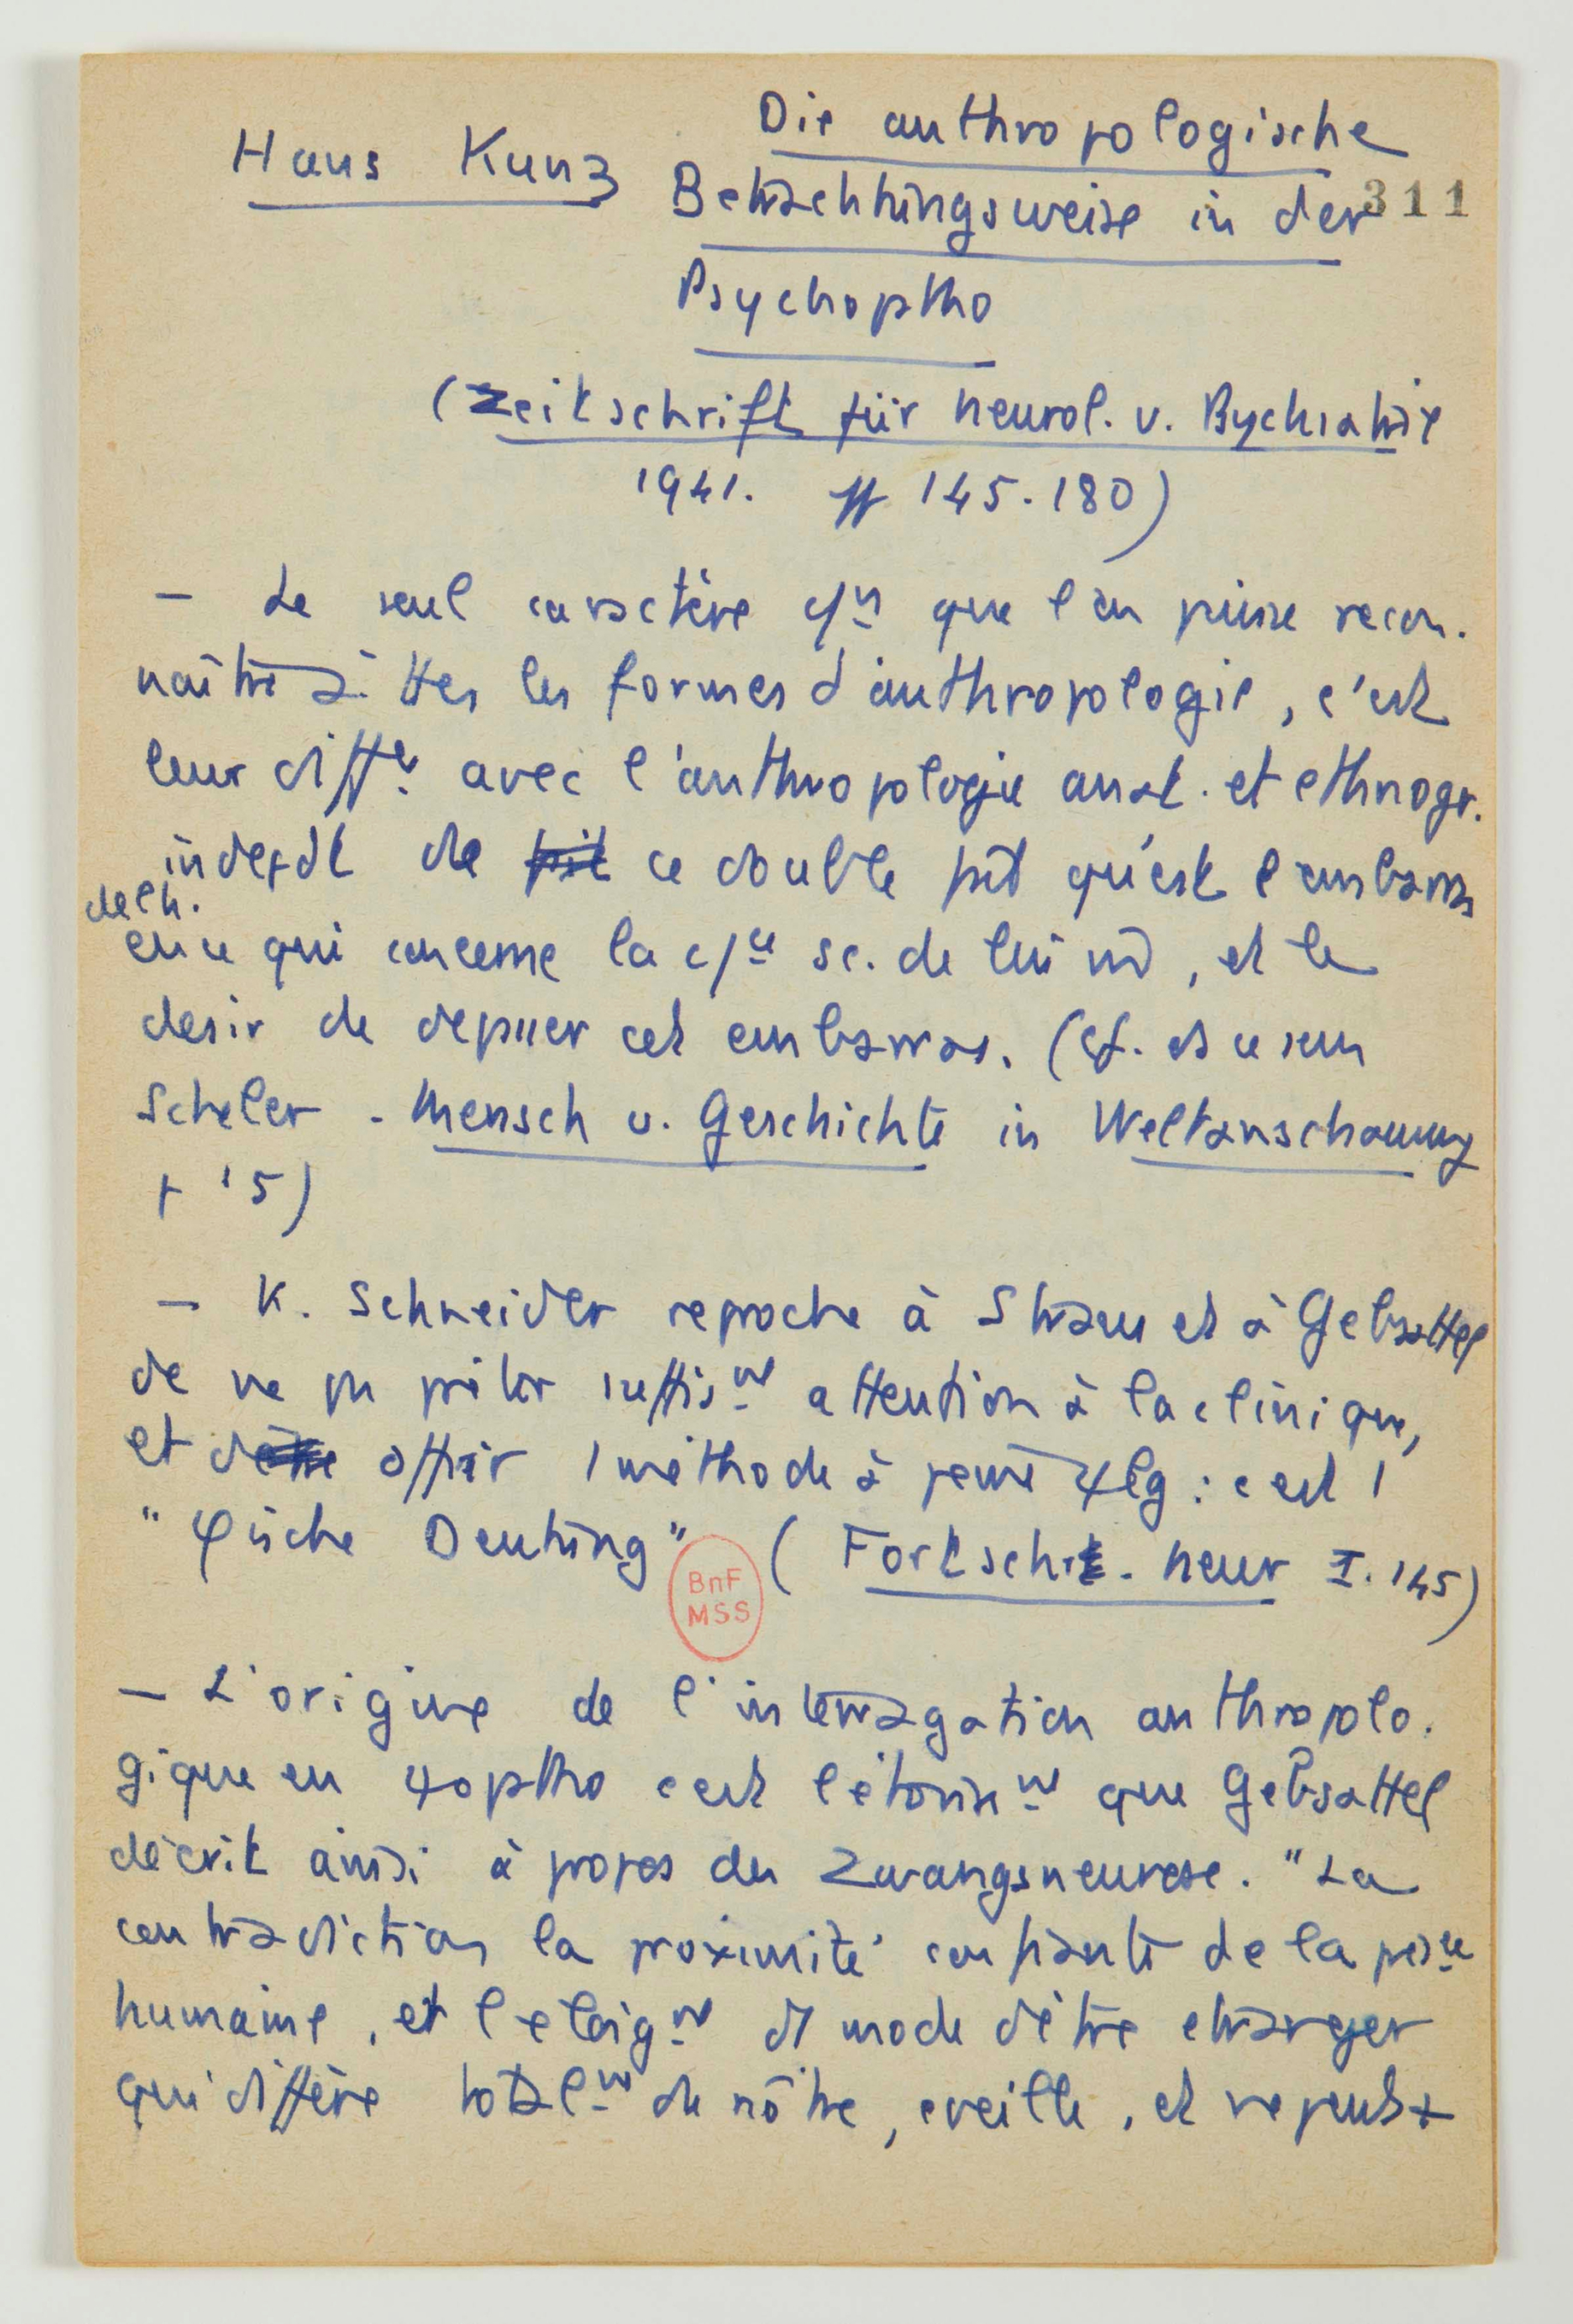 Hans Kunz Die anthropologische
Betrachtungsweise in der 311
Psychoptho
(Zeitschrift für Neurol. u. Psychiatrie
1941. pp 145-180)
— Le seul caractère c/n que l'on puisse recon-
naître à ttes les formes d'anthropologie, c'est
leur diff avec l'anthropologie anat. et ethnogr.
indepdt de ce double fait qu'est l'embarras
de l'h.
en ce qui concerne la c/ce sc. de lui m̄, et le
desir de depasser cet embarras. (Cf. ds ce sens
Scheler - Mensch u. Geschichte in Weltanschauung
p 15)
— K. Schneider reproche à Straus et à Gebsattel
de ne pas prêter suffisnt attention à la clinique,
et d'offrir 1 méthode à peine ψlg : c'est 1
"φische Deutung" (Fortschrt. Neur I. 145)
BnF
MSS
— L'origine de l'interrogation anthropolo-
gique en ψoptho c'est l'étonnnt que Gebsattel
décrit ainsi à propos des Zwangsneurose. "La
contradiction la proximité confiante de la pesce
humaine, et l'eloignt d1 mode d'être etranger
qui diffère totalnt du nôtre, eveille, et ne peut